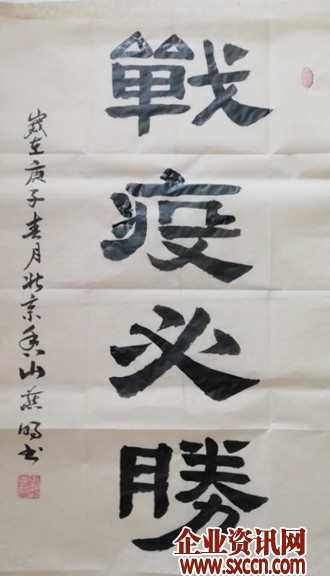 戰疫必勝
歲在庚子春月北京香山燕明書
企业资讯网
www.sxccn.com